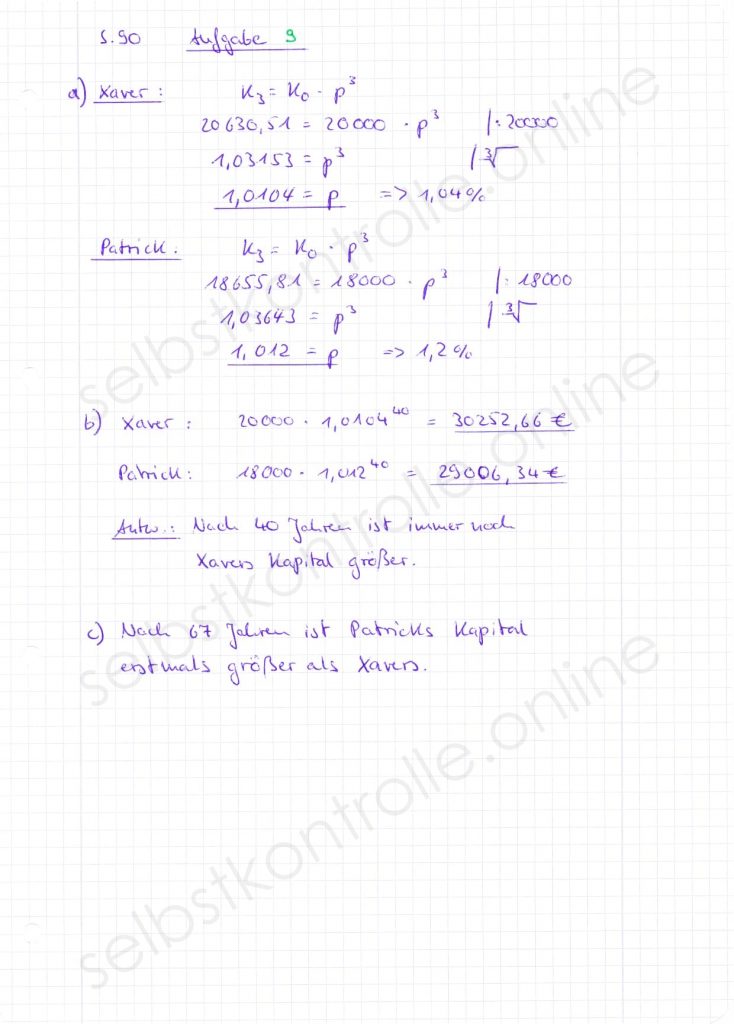 S.90 Aufgabe 9
a) Xaver: K₃ = K₀ · p³
20630,51 = 20000 · p³ |:20000
1,03153 = p³ |∛
1,0104 = p => 1,04%
Patrick: K₃ = K₀ · p³
18655,81 = 18000 · p³ |:18000
1,03643 = p³ |∛
1,012 = p => 1,2%
b) Xaver: 20000 · 1,0104⁴⁰ = 30252,66 €
Patrick: 18000 · 1,012⁴⁰ = 29006,34 €
Antw.: Nach 40 Jahren ist immer noch
Xavers Kapital größer.
c) Nach 67 Jahren ist Patricks Kapital
erstmals größer als Xavers.
selbstkontrolle.online
selbstkontrolle.online
selbstkontrolle.online